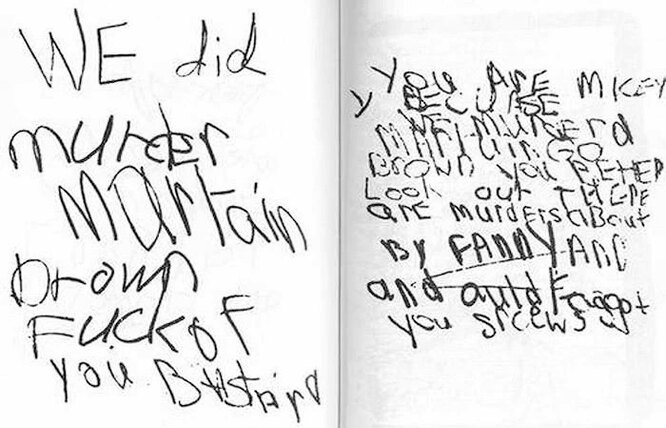 WE did
murder
MARtain
brown
FUCKOF
YOU BAStArd
YOU ARE MICEY
Y BECUSE
WE MURdERd
MARTAIN GO
BROWN YOU BETTER
LOOk out THERE
are MURdERS aBout
By FANNYANd
and auld Faggot
you srcews